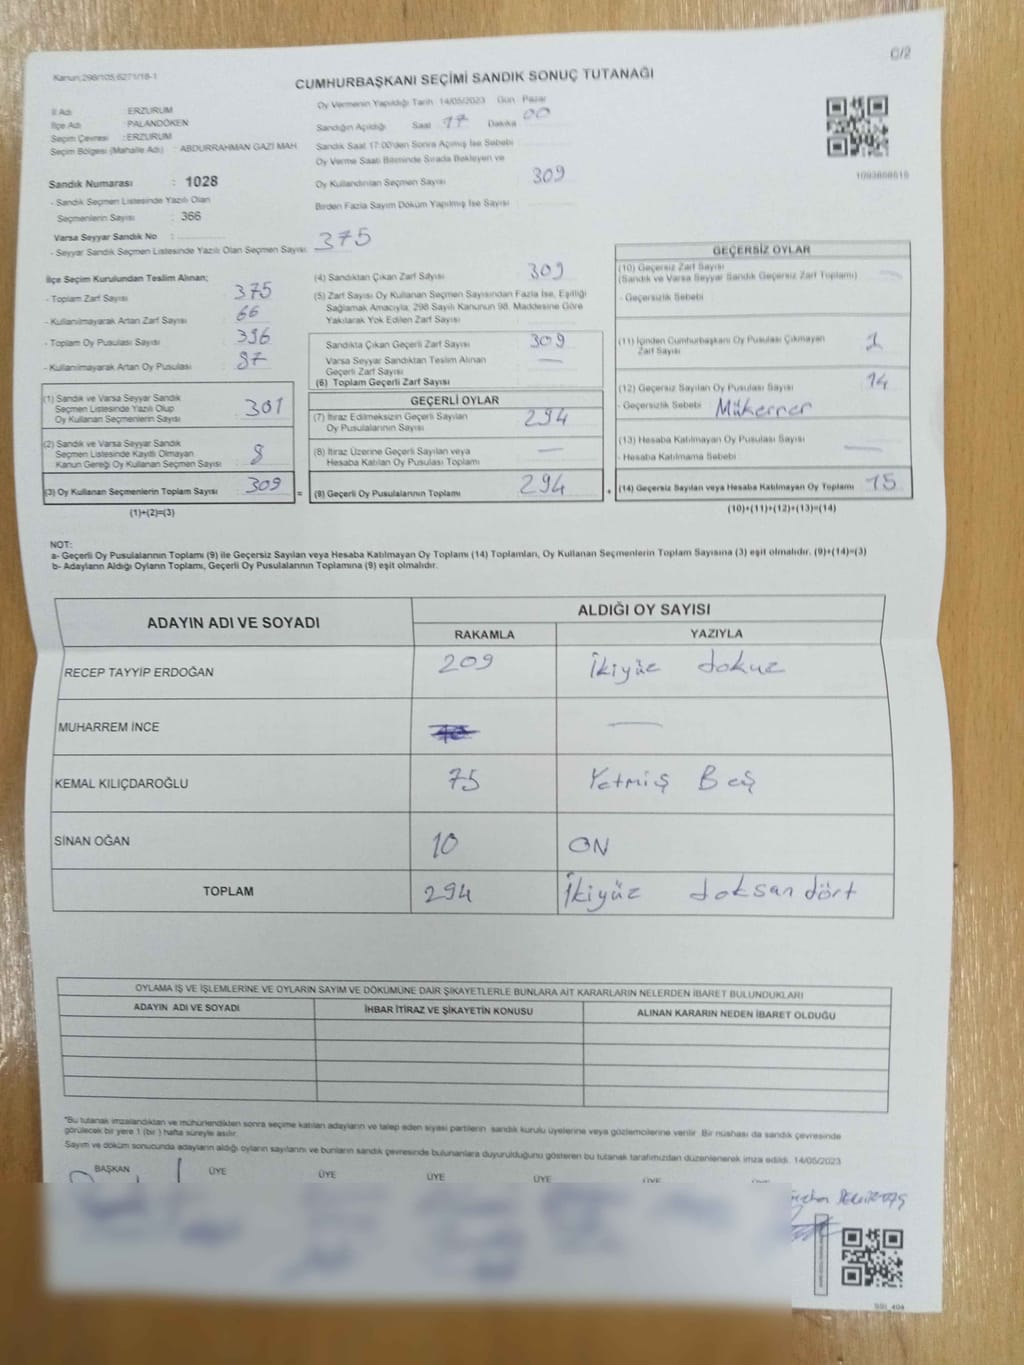 C/2
Kanun;298/105,6271/18-1
CUMHURBAŞKANI SEÇİMİ SANDIK SONUÇ TUTANAĞI
İl Adı : ERZURUM
İlçe Adı : PALANDÖKEN
Seçim Çevresi : ERZURUM
Seçim Bölgesi (Mahalle Adı) : ABDURRAHMAN GAZI MAH.
Sandık Numarası : 1028
- Sandık Seçmen Listesinde Yazılı Olan
Seçmenlerin Sayısı : 366
Varsa Seyyar Sandık No :
- Seyyar Sandık Seçmen Listesinde Yazılı Olan Seçmen Sayısı: 375
Oy Vermenin Yapıldığı Tarih 14/05/2023 Gün Pazar
Sandığın Açıldığı Saat 17 Dakika 00
Sandık Saat 17:00'den Sonra Açımış İse Sebebi :
Oy Verme Saati Bitiminde Sırada Bekleyen ve
Oy Kullandırılan Seçmen Sayısı : 309
Birden Fazla Sayım Döküm Yapılmış İse Sayısı :
İlçe Seçim Kurulundan Teslim Alınan;
- Toplam Zarf Sayısı : 375
- Kullanılmayarak Artan Zarf Sayısı : 66
- Toplam Oy Pusulası Sayısı : 396
- Kullanılmayarak Artan Oy Pusulası : 87
(1) Sandık ve Varsa Seyyar Sandık
Seçmen Listesinde Yazılı Olup
Oy Kullanan Seçmenlerin Sayısı : 301
(2) Sandık ve Varsa Seyyar Sandık
Seçmen Listesinde Kayıtlı Olmayan
Kanun Gereği Oy Kullanan Seçmen Sayısı : 8
(3) Oy Kullanan Seçmenlerin Toplam Sayısı : 309
(1)+(2)=(3)
(4) Sandıktan Çıkan Zarf Sayısı : 309
(5) Zarf Sayısı Oy Kullanan Seçmen Sayısından Fazla İse, Eşitliği
Sağlamak Amacıyla; 298 Sayılı Kanunun 98. Maddesine Göre
Yakılarak Yok Edilen Zarf Sayısı :
Sandıkta Çıkan Geçerli Zarf Sayısı : 309
Varsa Seyyar Sandıktan Teslim Alınan
Geçerli Zarf Sayısı : —
(6) Toplam Geçerli Zarf Sayısı :
GEÇERLİ OYLAR
(7) İtiraz Edilmeksizin Geçerli Sayılan
Oy Pusulalarının Sayısı : 294
(8) İtiraz Üzerine Geçerli Sayılan veya
Hesaba Katılan Oy Pusulası Toplamı : —
= (9) Geçerli Oy Pusulalarının Toplamı : 294
GEÇERSİZ OYLAR
(10) Geçersiz Zarf Sayısı : —
(Sandık ve Varsa Seyyar Sandık Geçersiz Zarf Toplamı)
- Geçersizlik Sebebi
(11) İçinden Cumhurbaşkanı Oy Pusulası Çıkmayan
Zarf Sayısı : 1
(12) Geçersiz Sayılan Oy Pusulası Sayısı : 14
- Geçersizlik Sebebi : Mükerrer
(13) Hesaba Katılmayan Oy Pusulası Sayısı : —
- Hesaba Katılmama Sebebi :
+ (14) Geçersiz Sayılan veya Hesaba Katılmayan Oy Toplamı : 15
(10)+(11)+(12)+(13)=(14)
NOT:
a- Geçerli Oy Pusulalarının Toplamı (9) ile Geçersiz Sayılan veya Hesaba Katılmayan Oy Toplamı (14) Toplamları, Oy Kullanan Seçmenlerin Toplam Sayısına (3) eşit olmalıdır. (9)+(14)=(3)
b- Adayların Aldığı Oyların Toplamı, Geçerli Oy Pusulalarının Toplamına (9) eşit olmalıdır.
ADAYIN ADI VE SOYADI ALDIĞI OY SAYISI
RAKAMLA YAZIYLA
RECEP TAYYİP ERDOĞAN 209 İkiyüz dokuz
MUHARREM İNCE —
KEMAL KILIÇDAROĞLU 75 Yetmiş Beş
SİNAN OĞAN 10 ON
TOPLAM 294 İkiyüz doksan dört
OYLAMA İŞ VE İŞLEMLERİNE VE OYLARIN SAYIM VE DÖKÜMÜNE DAİR ŞİKAYETLERLE BUNLARA AİT KARARLARIN NELERDEN İBARET BULUNDUKLARI
ADAYIN ADI VE SOYADI İHBAR İTİRAZ VE ŞİKAYETİN KONUSU ALINAN KARARIN NEDEN İBARET OLDUĞU
*Bu tutanak imzalandıktan ve mühürlendikten sonra seçime katılan adayların ve talep eden siyasi partilerin sandık kurulu üyelerine veya gözlemcilerine verilir. Bir nüshası da sandık çevresinde
görülecek bir yere 1 (bir) hafta süreyle asılır.
Sayım ve döküm sonucunda adayların aldığı oyların sayılarını ve bunların sandık çevresinde bulunanlara duyurulduğunu gösteren bu tutanak tarafımızdan düzenlenerek imza edildi. 14/05/2023
BAŞKAN ÜYE ÜYE ÜYE ÜYE ÜYE